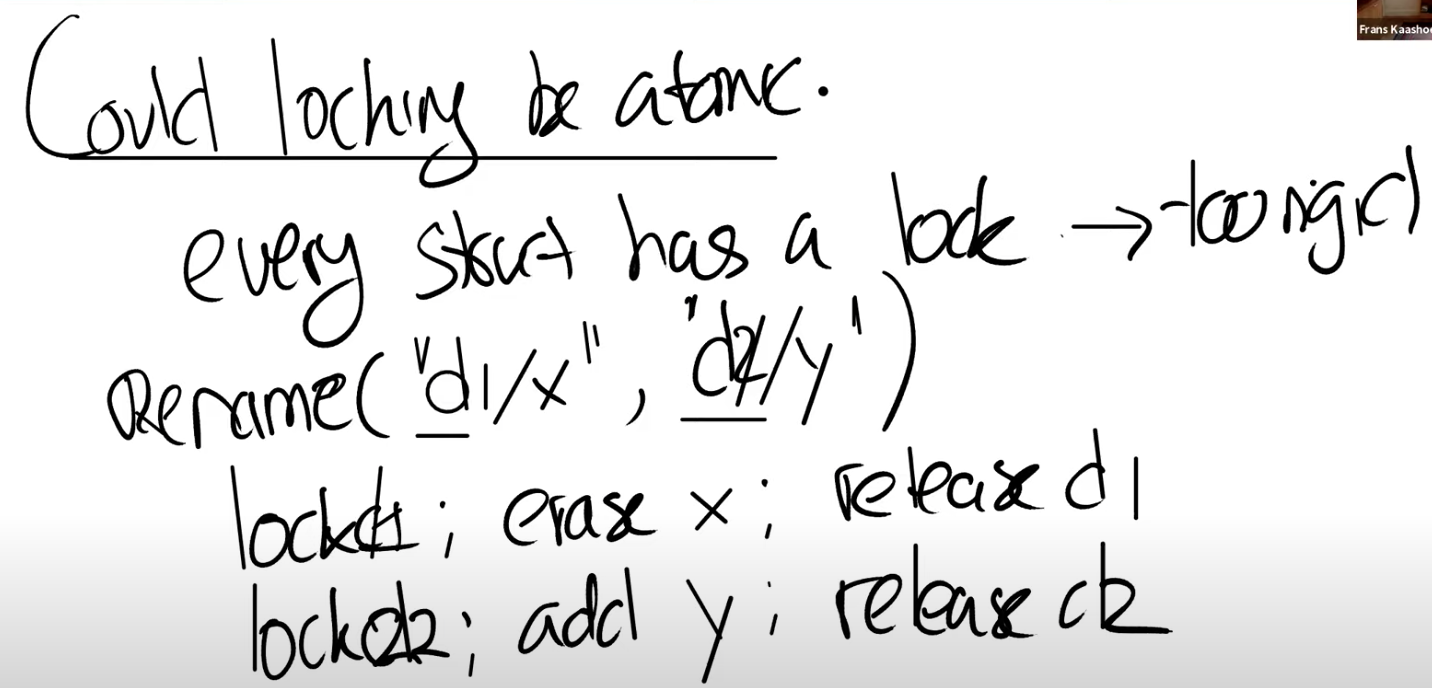 Frans Kaashoe
Could locking be atomic.
every struct has a lock → too rigid
Rename("d1/x", "d2/y")
lock d1; erase x; release d1
lock d2; add y; release d2